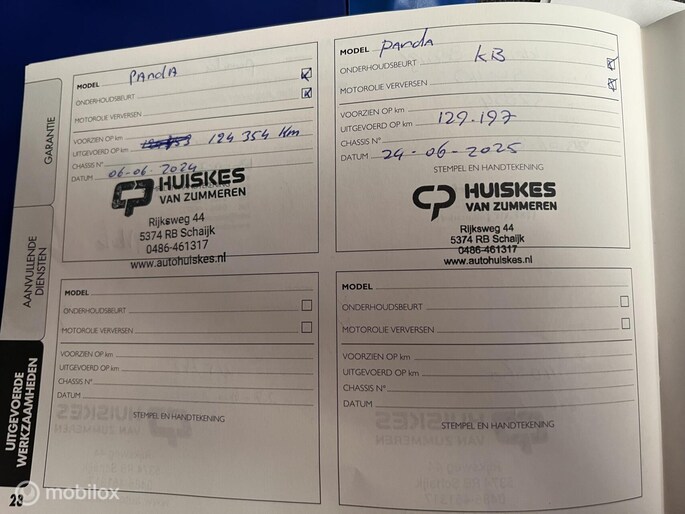 GARANTIE
AANVULLENDE
DIENSTEN
UITGEVOERDE
WERKZAAMHEDEN
MODEL PANDA
ONDERHOUDSBEURT
MOTOROLIE VERVERSEN
VOORZIEN OP km
UITGEVOERD OP km 124 354 Km
CHASSIS N°
DATUM 06-06.2024
HUISKES
VAN ZUMMEREN
Rijksweg 44
5374 RB Schaijk
0486-461317
www.autohuiskes.nl
MODEL PANDA
ONDERHOUDSBEURT KB
MOTOROLIE VERVERSEN
VOORZIEN OP km
UITGEVOERD OP km 129.197
CHASSIS N°
DATUM 24-06-2025
STEMPEL EN HANDTEKENING
HUISKES
VAN ZUMMEREN
Rijksweg 44
5374 RB Schaijk
0486-461317
www.autohuiskes.nl
MODEL
ONDERHOUDSBEURT
MOTOROLIE VERVERSEN
VOORZIEN OP km
UITGEVOERD OP km
CHASSIS N°
DATUM
STEMPEL EN HANDTEKENING
MODEL
ONDERHOUDSBEURT
MOTOROLIE VERVERSEN
VOORZIEN OP km
UITGEVOERD OP km
CHASSIS N°
DATUM
STEMPEL EN HANDTEKENING
28
mobilox